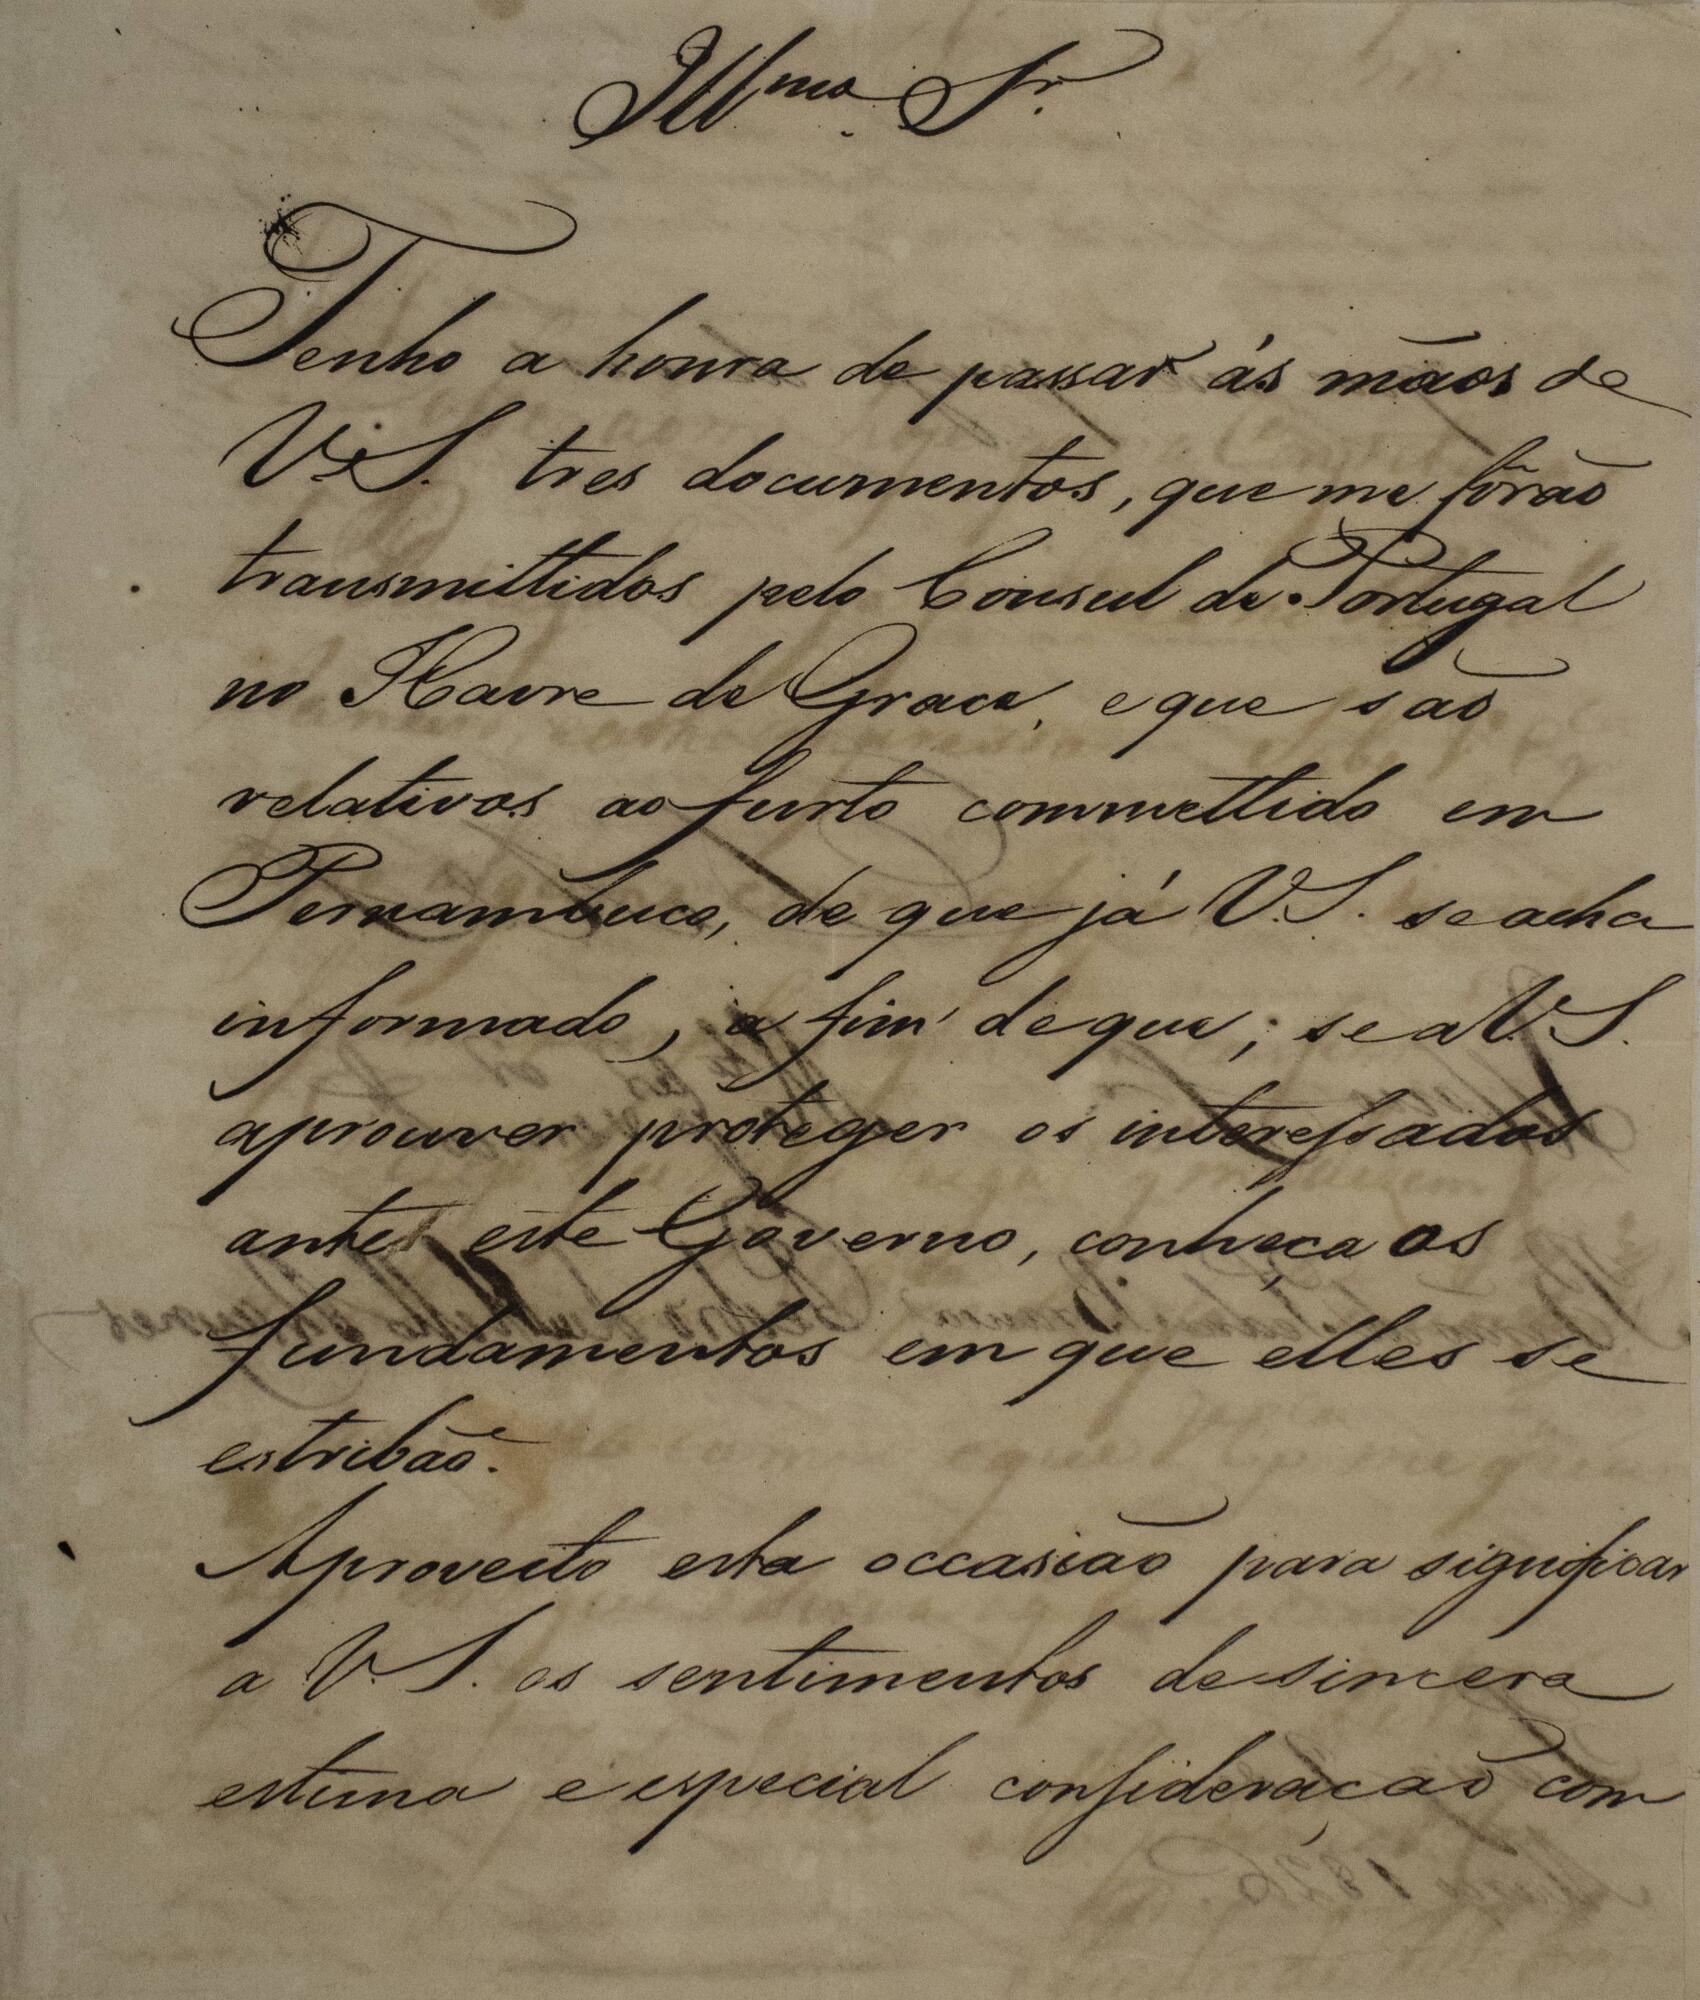 Illmo. Sr.
Tenho a honra de passar ás mãos de
V.S. tres documentos, que me forão
transmittidos pelo Consul de Portugal
no Havre de Grace, e que são
relativos ao furto commettido em
Pernambuco, de que já V.S. se acha
informado, a fim de que, se a V.S.
aprouver proteger os interessados
ante este Governo, conheça os
fundamentos em que elles se
estribão.
Aproveito esta occasião para significar
a V.S. os sentimentos de sincera
estima e especial consideração com